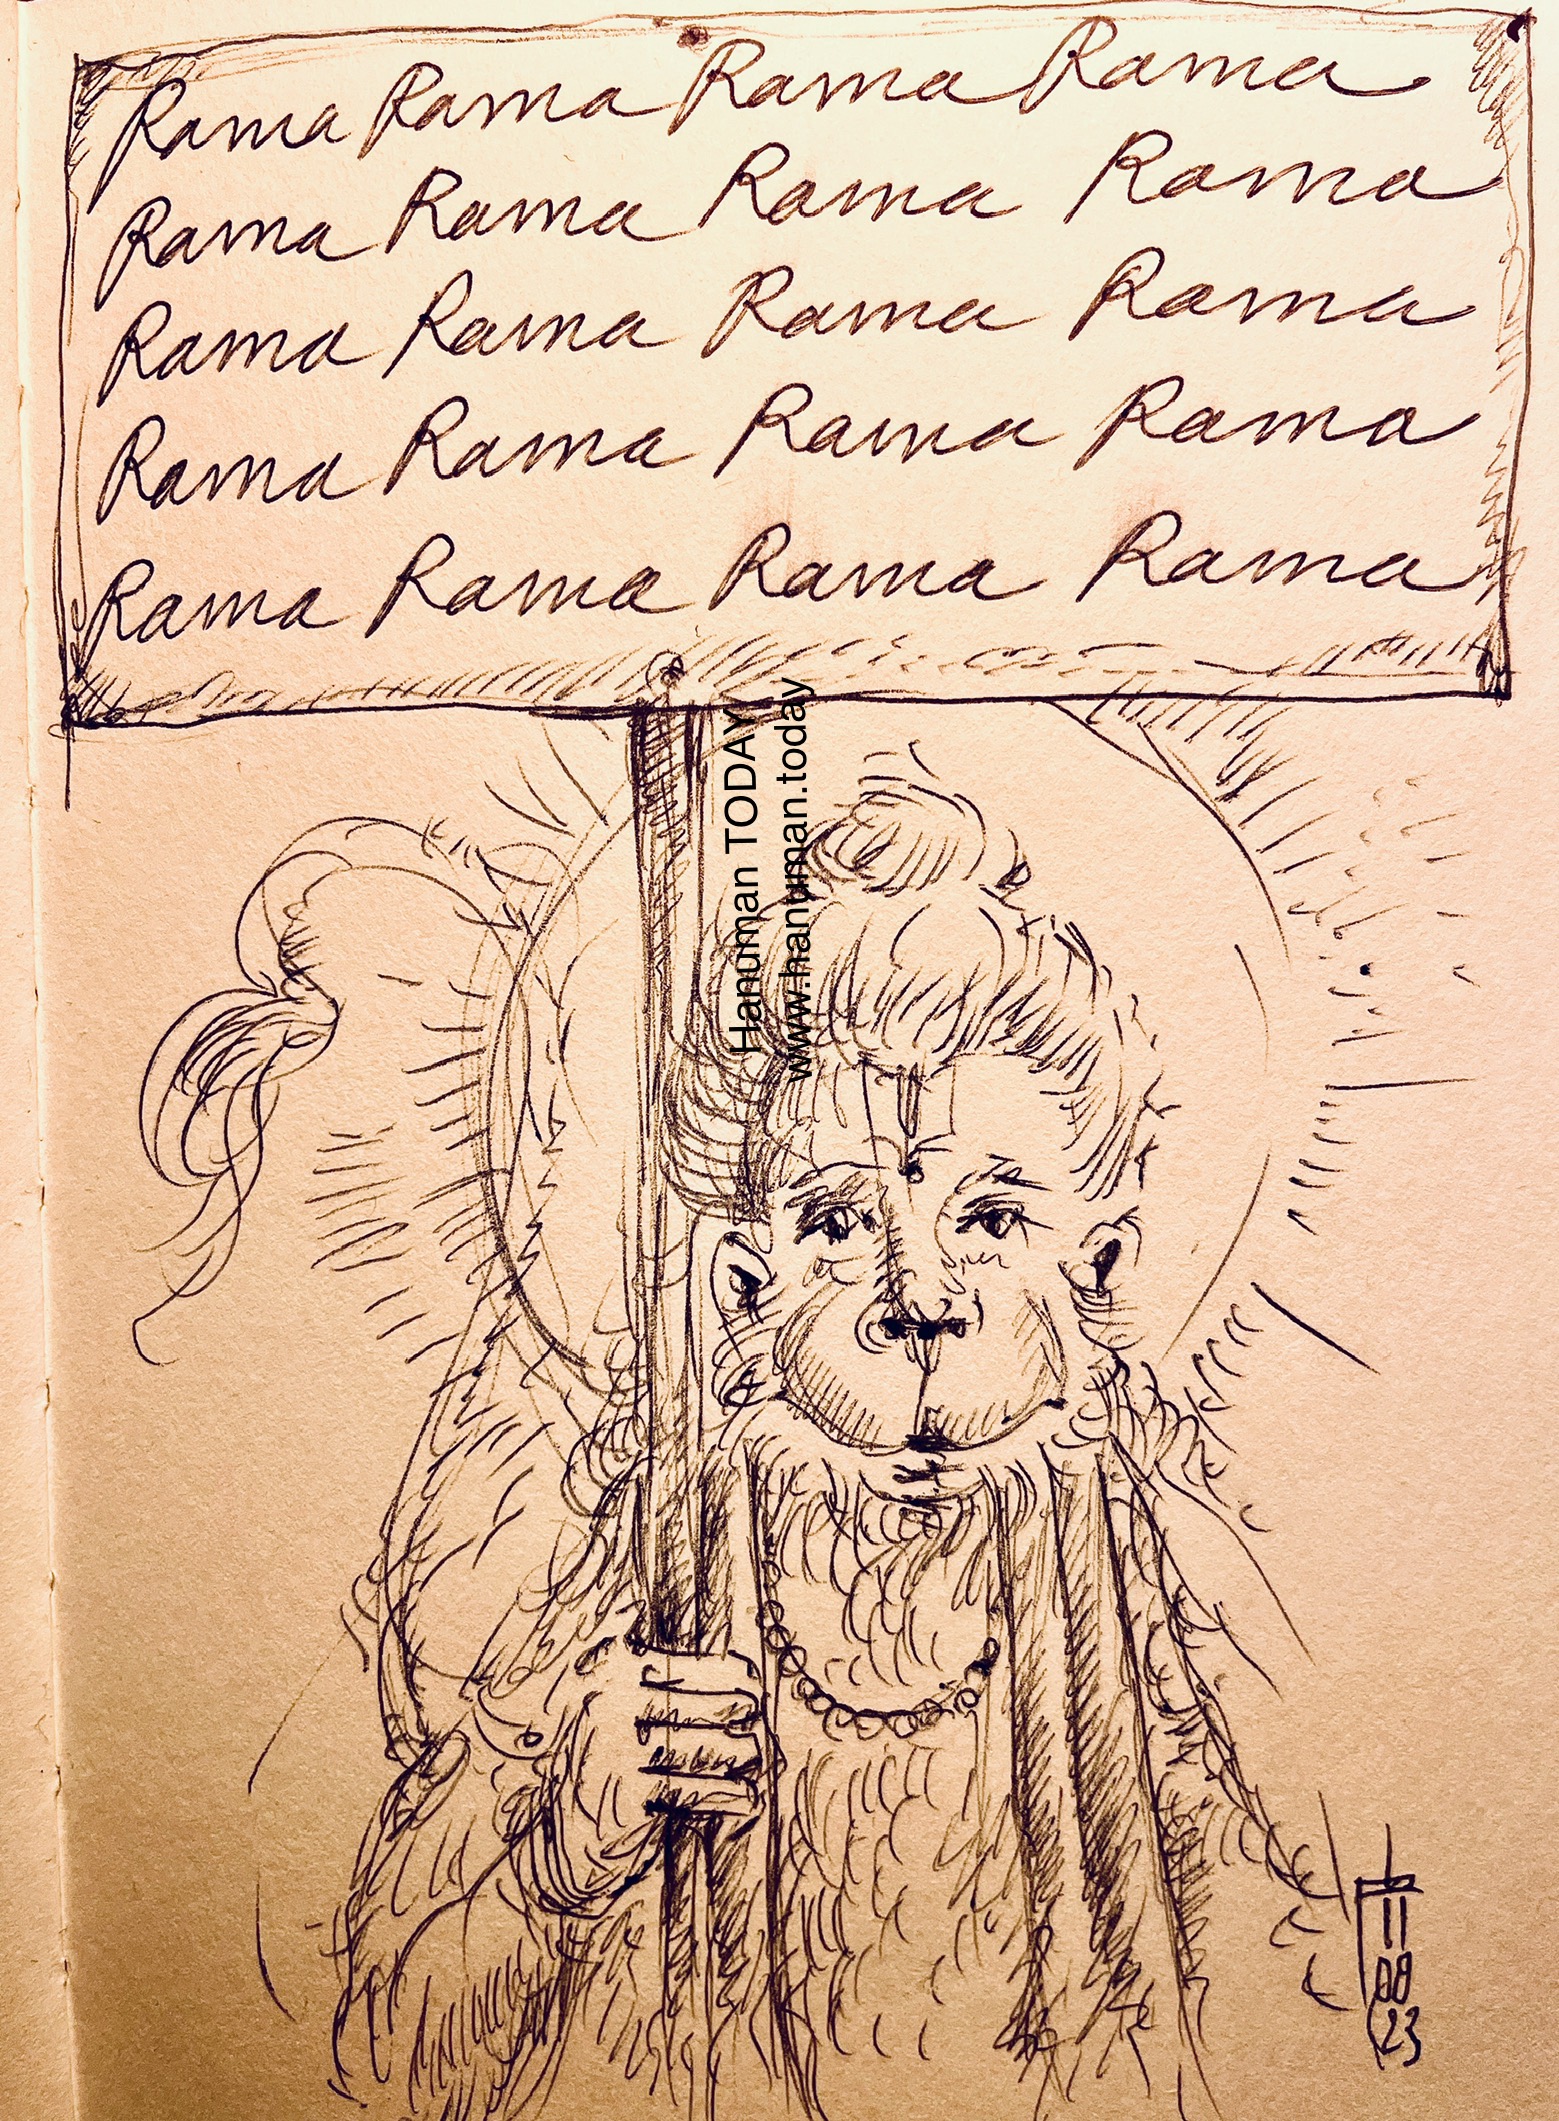 Rama Rama Rama Rama
Rama Rama Rama Rama
Rama Rama Rama Rama
Rama Rama Rama Rama
Rama Rama Rama Rama
Hanuman TODAY
www.hanuman.today
11
08
23